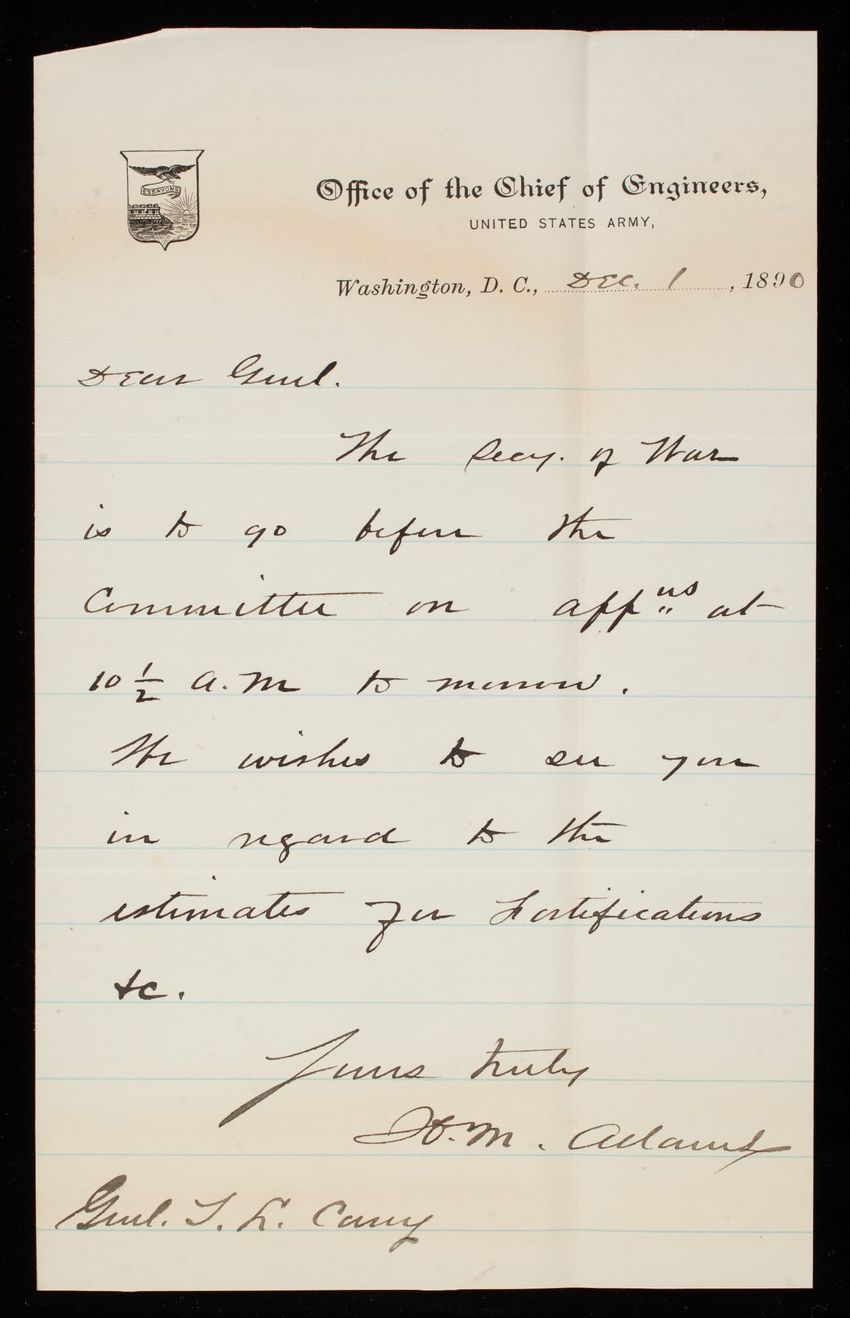 ESSAYONS
Office of the Chief of Engineers,
UNITED STATES ARMY,
Washington, D. C., Dec. 1, 1890
Dear Genl.
The Secy. of War
is to go before the
Committee on appns at
10 1/2 a.m to morrow.
He wishes to see you
in regard to the
estimates for Fortifications
&c.
Yours truly
H. M. Adams
Genl. T. L. Casey